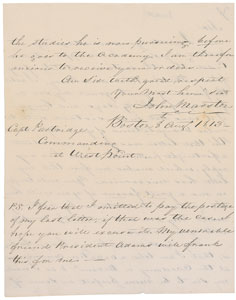 the studies he is now pursuing, before
he goes to the Academy. I am therefore
anxious to receive your orders.
I am Sir with great respect
Your Most Humble
John
Boston 5 Aug. 1813.
Capt. Partridge
Commanding
at West Point
P.S. I fear that I omitted to pay the postage
of my last letter, if that was the case I
hope you will excuse me. My venerable
friend President Adams will frank
this for me.